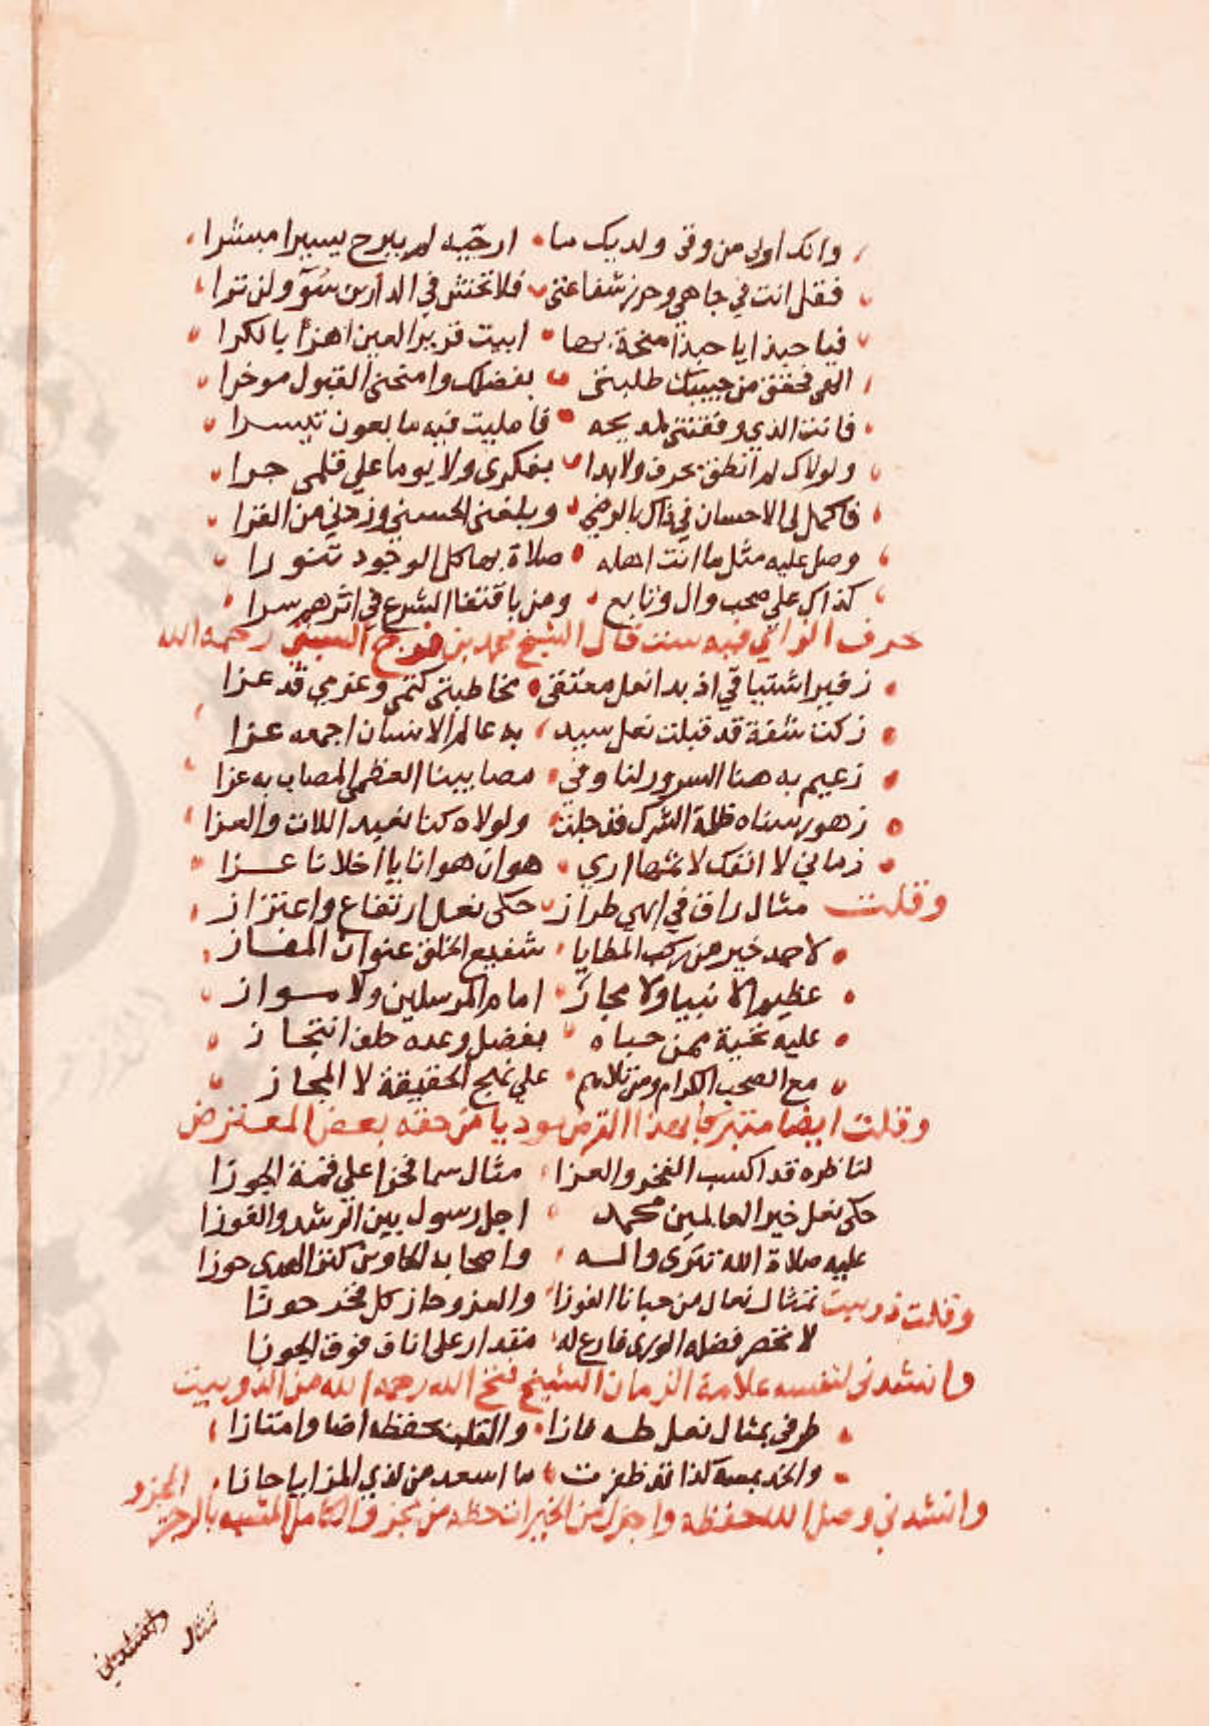 وانك اولى من وفى ولديك ما ارجيه لم يبرح يسيرا مبشرا
فقل انت في جاهي وحرز شفاعتي فلا تختش في الدارين سوٓ ولن ترا
فيا حبذا يا حبذا منحة بها ابيت قرير العين اهزأ بالكرا
الهى فحقق من حبيبك طلبتى بفضلك وامنحنى القبول موخرا
فانت الذي وفقتني لمديحه فامليت فيه ما بعون تيسرا
ولولاك لم انطق بحرف ولا بدا بفكرى ولا يوما علي قلمى جرا
فاكمل لى الاحسان في ذاك بالرضي وبلغنى الحسنى وزدني من القرا
وصل عليه مثل ما انت اهله صلاة بها كل الوجود تنورا
كذاك علي صحب وال وتابع ومن باقتفا الشرع في اثرهم سرا
حرف الزاي فيه ست قال الشيخ محمد بن فرج السبتي رحمه الله
زفير اشتياقي اذ بدا نعل معتقى مخاطبتى كتمى وعزمي قد عزا
زكت شفة قد قبلت نعل سيد به عالم الانسان اجمعه عزا
زعيم به هنا السرور لنا وفي مصايبنا العظمى المصاب به عزا
زهور سناه ظلمة الشرك قد جلت ولولاه كنا نعبد اللات والعزا
زماني لا انفك لاثمها اري هوان هوانا يا اخلانا عزا
وقلت مثال راق في ابهي طراز حكى نعل ارتفاع واعتزاز
لاحمد خير من ركب المطايا شفيع الخلق عنوان المفاز
عظيم الانبيا ولا مجاز امام المرسلين ولا مواز
عليه تحية ممن حباه بفضل وعده حلف انتجاز
مع الصحب الكرام ومن تلاهم علي نهج الحقيقة لا المجاز
وقلت ايضا متبركا بهذا الغرض موديا من حقه بعض المفترض
لناظره قد اكسب الفخر والعزا مثال سما فخرا علي قمة الجوزا
حكى نعل خير العالمين محمد اجل رسول بين الرشد والفوزا
عليه صلاة الله تترى واله واصحابه الحاوين كنز الهدى حوزا
وقلت ذوبيت تمثال نعال من حبانا الفوزا والعز وحاز كل فخر حوزا
لا تحصر فضله الورى فارع له مقدار على اناف فوق الجوزا
وانشدنى لنفسه علامة الزمان الشيخ فتح الله رحمه الله من الذوبيت
طرفى بمثال نعل طه فازا والقلب بحفظه اضا وامتازا
والخد بمسه لذا قد ظفرت ما اسعد من لذي المزايا حازا
وانشدني وصل الله حفظه واجزل من الخير حظه من مجزو الكامل المشبه بالرجز المجزو
تمثال
وانشدني